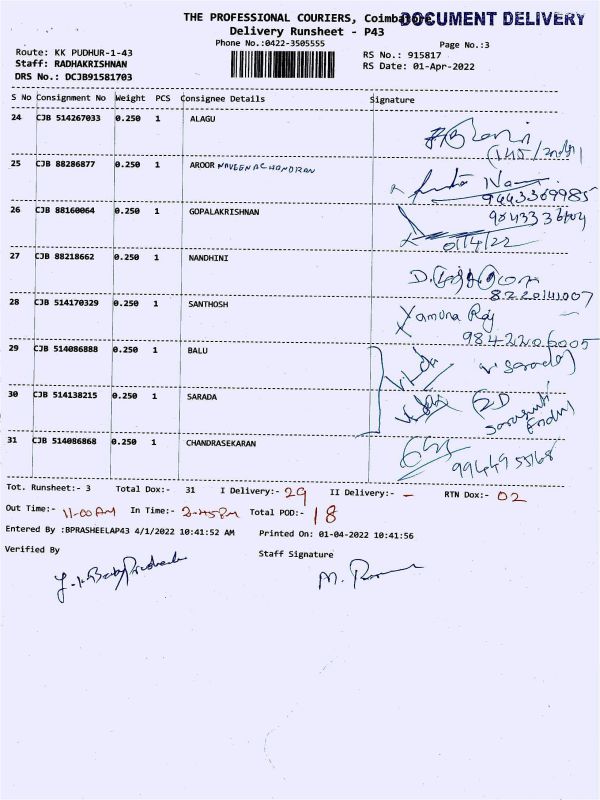 THE PROFESSIONAL COURIERS, Coimbatore.
DOCUMENT DELIVERY
Delivery Runsheet - P43
Phone No.:0422-3505555
Page No.:3
Route: KK PUDHUR-1-43
RS No.: 915817
Staff: RADHAKRISHNAN
RS Date: 01-Apr-2022
DRS No.: DCJB91581703
S No Consignment No Weight PCS Consignee Details Signature
24 CJB 514267033 0.250 1 ALAGU
25 CJB 88286877 0.250 1 AROOR NAVEENACHANDRAN
9443369985
26 CJB 88160064 0.250 1 GOPALAKRISHNAN
01/4/22
27 CJB 88218662 0.250 1 NANDHINI
8220141007
28 CJB 514170329 0.250 1 SANTHOSH
Yamuna Raj
9842206005
29 CJB 514086888 0.250 1 BALU
30 CJB 514138215 0.250 1 SARADA
31 CJB 514086868 0.250 1 CHANDRASEKARAN
Tot. Runsheet:- 3 Total Dox:- 31 I Delivery:- 29 II Delivery:- - RTN Dox:- 02
Out Time:- 11-00 AM In Time:- 2-45PM Total POD:- 18
Entered By :BPRASHEELAP43 4/1/2022 10:41:52 AM Printed On: 01-04-2022 10:41:56
Verified By Staff Signature